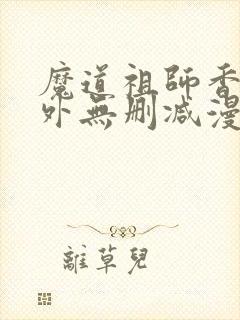 魔道祖師香
外無刪減漫
離草兒